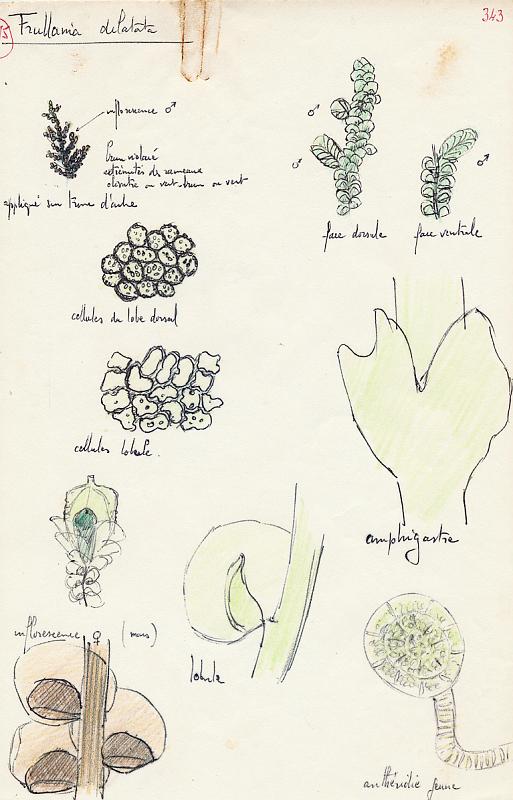 343
15
Frullania dilatata
inflorescence ♂
brun violacé
extrémités des rameaux
olivâtre ou vert-brun ou vert
appliqué sur tronc d'arbre
♂
♂
♂
face dorsale
face ventrale
cellules du lobe dorsal
cellules lobule.
amphigastre
inflorescence ♀ (mars)
lobule
anthéridie jeune